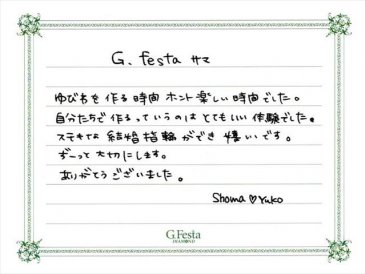 G. festa サマ
ゆびわを作る時間 ホント楽しい時間でした。
自分たちで作るっていうのは とてもいい体験でした。
ステキな 結婚指輪ができ 嬉しいです。
ずーっと大切にします。
ありがとうございました。
Shoma♡Yuko
G.Festa
DIAMOND